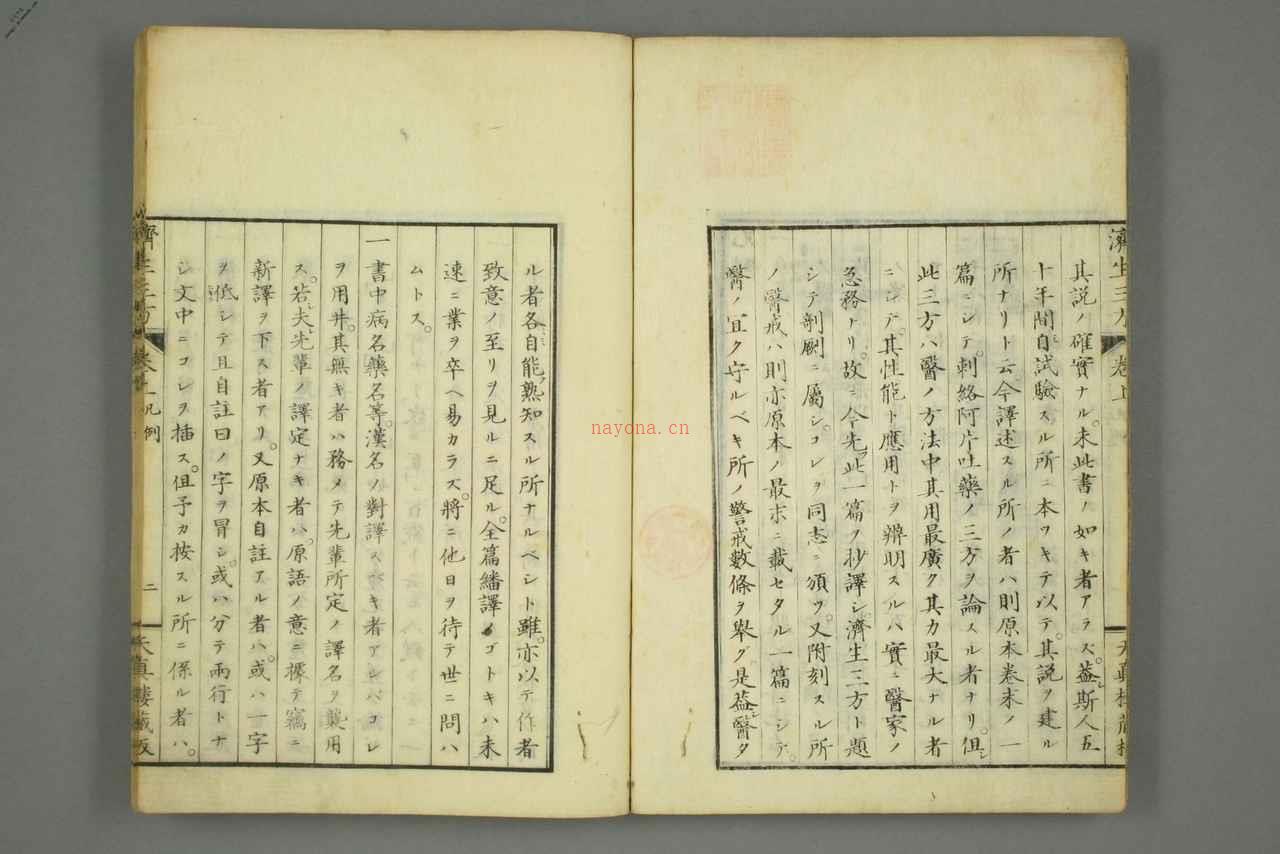 濟生三方 卷上
其説ノ確實ナル。未此書ノ如キ者アラス。蓋斯人五
十年間自試驗スル所ニ本ツキテ以テ。其説ヲ建ル
所ナリト云今譯述スル所ノ者ハ則原本卷末ノ一
篇ニシテ。刺絡阿片吐藥ノ三方ヲ論スル者ナリ。但シ
此三方ハ醫ノ方法中其用最廣ク其力最大ナル者
ニシテ。其性能ト應用トヲ辨明スルハ實ニ醫家ノ
急務ナリ。故ニ今先此一篇ヲ抄譯シ。濟生三方ト題
シテ剞劂ニ屬シ。コレヲ同志ニ頒ツ。又附刻スル所
ノ醫戒ハ則亦原本ノ最末ニ載セタル一篇ニシテ。
醫ノ宜ク守ルベキ所ノ警戒數條ヲ舉グ是蓋醫タ
ル者各自能熟知スル所ナルベシト雖。亦以テ作者
致意ノ至リヲ見ルニ足ル。全篇繙譯ノゴトキハ未
速ニ業ヲ卒ヘ易カラズ。將ニ他日ヲ待テ世ニ問ハ
ムトス。
一 書中病名藥名等。漢名ノ對譯スベキ者アレバコレ
ヲ用井。其無キ者ハ務メテ先輩所定ノ譯名ヲ襲用
ス。若シ夫先輩ノ譯定ナキ者ハ。原語ノ意ニ據テ竊ニ
新譯ヲ下ス者アリ。又原本自註アル者ハ。或ハ一字
ヲ低シテ且自註曰ノ字ヲ冒シ。或ハ分テ兩行トナ
シ文中ニコレヲ插ス。但予カ按スル所ニ係ル者ハ。
凡例
二
天真樓藏板
nayona.cn